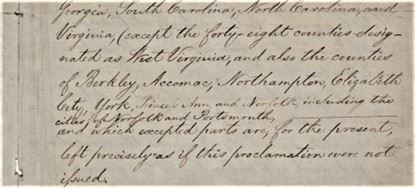 Georgia, South Carolina, North Carolina, and
Virginia, (except the forty-eight counties desig-
nated as West Virginia, and also the counties
of Berkley, Accomac, Northampton, Elizabeth
City, York, Princess Ann, and Norfolk, including the
cities of Norfolk and Portsmouth,
and which excepted parts are, for the present,
left precisely as if this proclamation were not
issued.